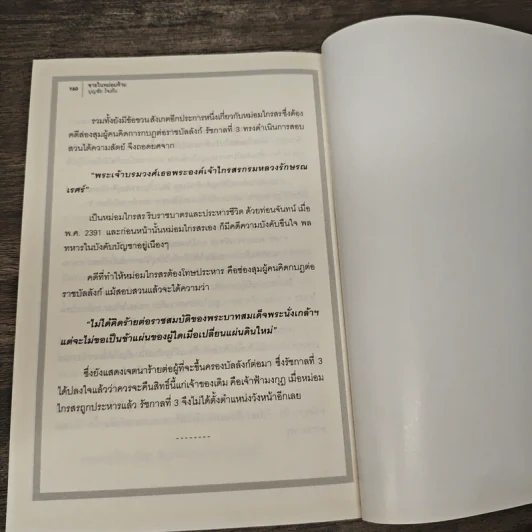 160
ชายในหม่อมห้าม
บุญชัย ใจเย็น
รวมทั้งยังมีข้อชวนสังเกตอีกประการหนึ่งเกี่ยวกับหม่อมไกรสรซึ่งต้อง
คดีส่องสุมผู้คนคิดการกบฏต่อราชบัลลังก์ รัชกาลที่ 3 ทรงดำเนินการสอบ
สวนได้ความสัตย์ จึงถอดยศจาก
"พระเจ้าบรมวงศ์เธอพระองค์เจ้าไกรสรกรมหลวงรักษรณ
เรศร์"
เป็นหม่อมไกรสร ริบราชบาตรและประหารชีวิต ด้วยท่อนจันทน์ เมื่อ
พ.ศ. 2391 และก่อนหน้านั้นหม่อมไกรสรเอง ก็มีคดีความบังคับขืนใจ พล
ทหารในบังคับบัญชาอยู่เนืองๆ
คดีที่ทำให้หม่อมไกรสรต้องโทษประหาร คือซ่องสุมผู้คนคิดกบฏต่อ
ราชบัลลังก์ แม้สอบสวนแล้วจะได้ความว่า
"ไม่ได้คิดร้ายต่อราชสมบัติของพระบาทสมเด็จพระนั่งเกล้าฯ
แต่จะไม่ขอเป็นข้าแผ่นของผู้ใดเมื่อเปลี่ยนแผ่นดินใหม่"
ซึ่งยังแสดงเจตนาร้ายต่อผู้ที่จะขึ้นครองบัลลังก์ต่อมา ซึ่งรัชกาลที่ 3
ได้ปลงใจแล้วว่าควรจะคืนสิทธิ์นี้แก่เจ้าของเดิม คือเจ้าฟ้ามงกุฎ เมื่อหม่อม
ไกรสรถูกประหารแล้ว รัชกาลที่ 3 จึงไม่ได้ตั้งตำแหน่งวังหน้าอีกเลย
--------